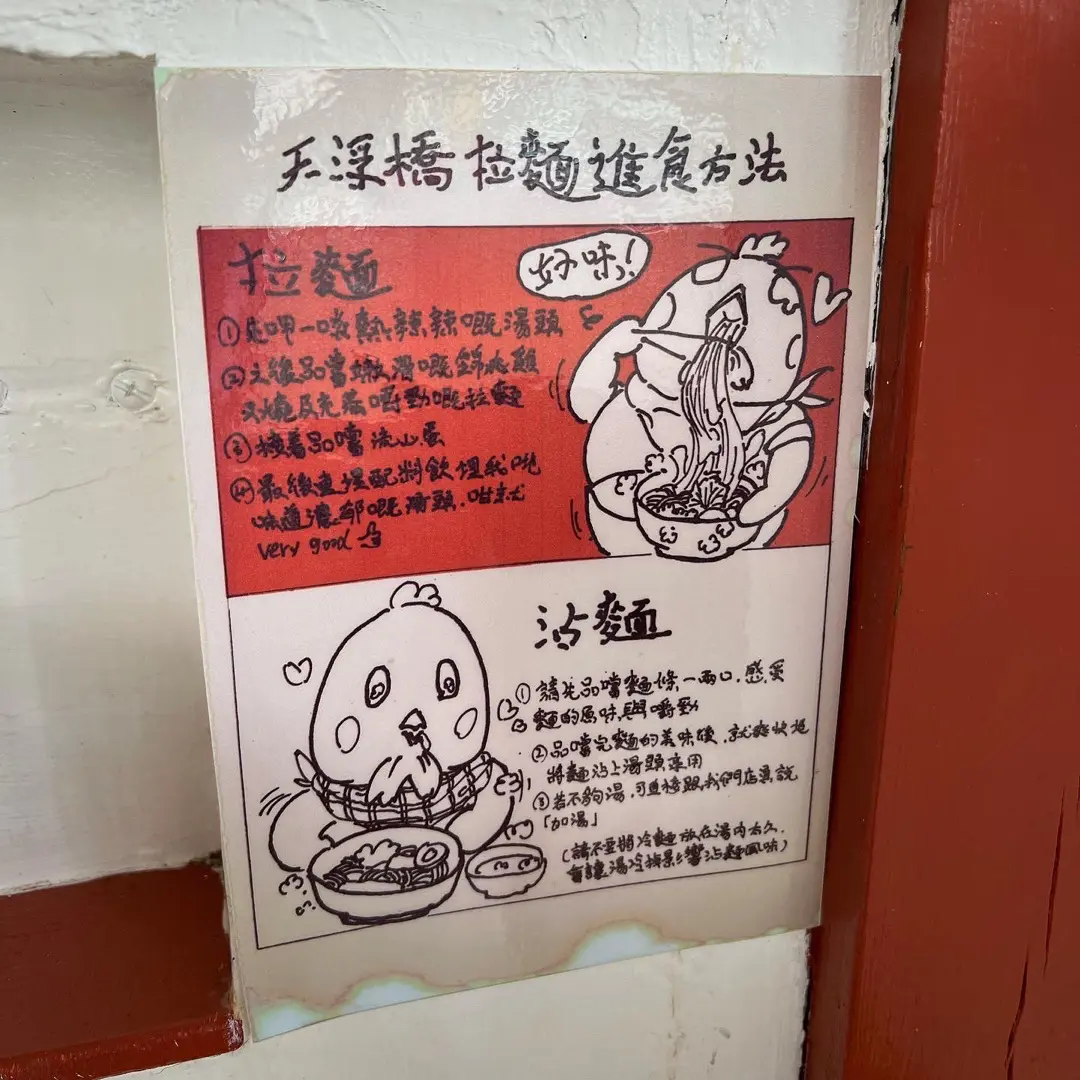 天深橋拉麵進食方法
拉麵
好味!
①先呷一啖熱辣辣嘅湯頭
②之後品嚐嫩滑嘅鮮 雞
叉燒及充滿嚼勁嘅拉麵
③接着品嚐流心蛋
④最後連埋配料飲埋我哋
味道濃郁嘅湯頭.咁就
very good
沾麵
①請先品嚐麵條一兩口.感受
麵的原味與嚼勁
②品嚐完麵的美味後.就爽快地
將麵沾上湯頭享用
③若不夠湯.可直接跟我們店員說
「加湯」
(請不要將冷麵放在湯內太久.
會讓湯冷掉影響沾麵風味)